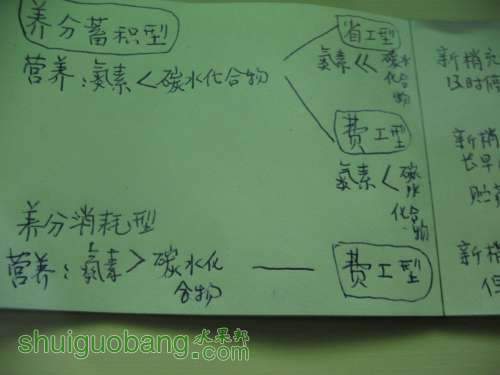 养分蓄积型
营养:氮素<碳水化合物
省工型
氮素<<碳水
化合
物
费工型
氮素<碳
水
化合
物
养分消耗型
营养:氮素>碳水化
合物
费工型
新梢
及时
新梢
长早
贮
新梢
水果邦
shuiguobang.com